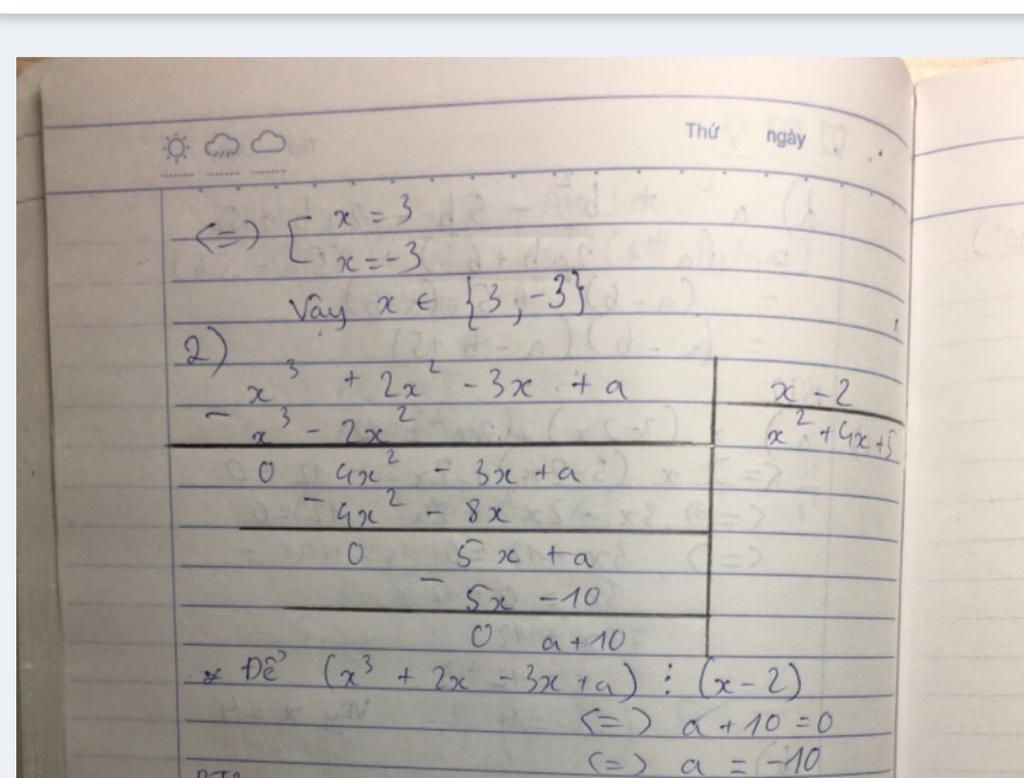 Thứ ngày
<=> [ x = 3
x = -3
Vậy x ∈ {3, -3}
2)
x³ + 2x² - 3x + a | x - 2
- x³ - 2x² | x² + 4x + 5
0 4x² - 3x + a
- 4x² - 8x
0 5x + a
- 5x - 10
0 a + 10
* Để (x³ + 2x - 3x + a) ⋮ (x - 2)
<=> a + 10 = 0
<=> a = -10